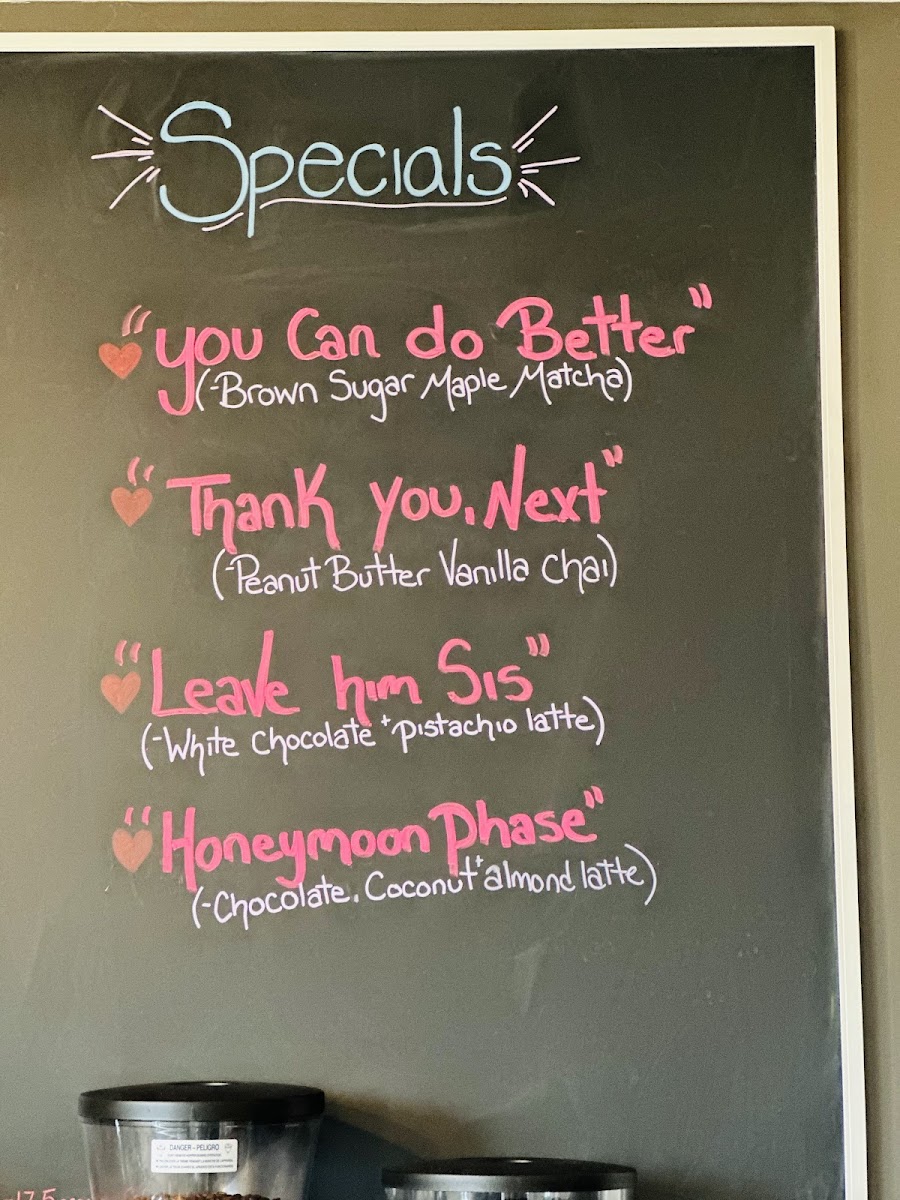 Specials
"You Can do Better"
(-Brown Sugar Maple Matcha)
"Thank you, Next"
(-Peanut Butter Vanilla Chai)
"Leave him Sis"
(-White Chocolate + pistachio latte)
"Honeymoon Phase"
(-Chocolate, Coconut + almond latte)
DANGER - PELIGRO